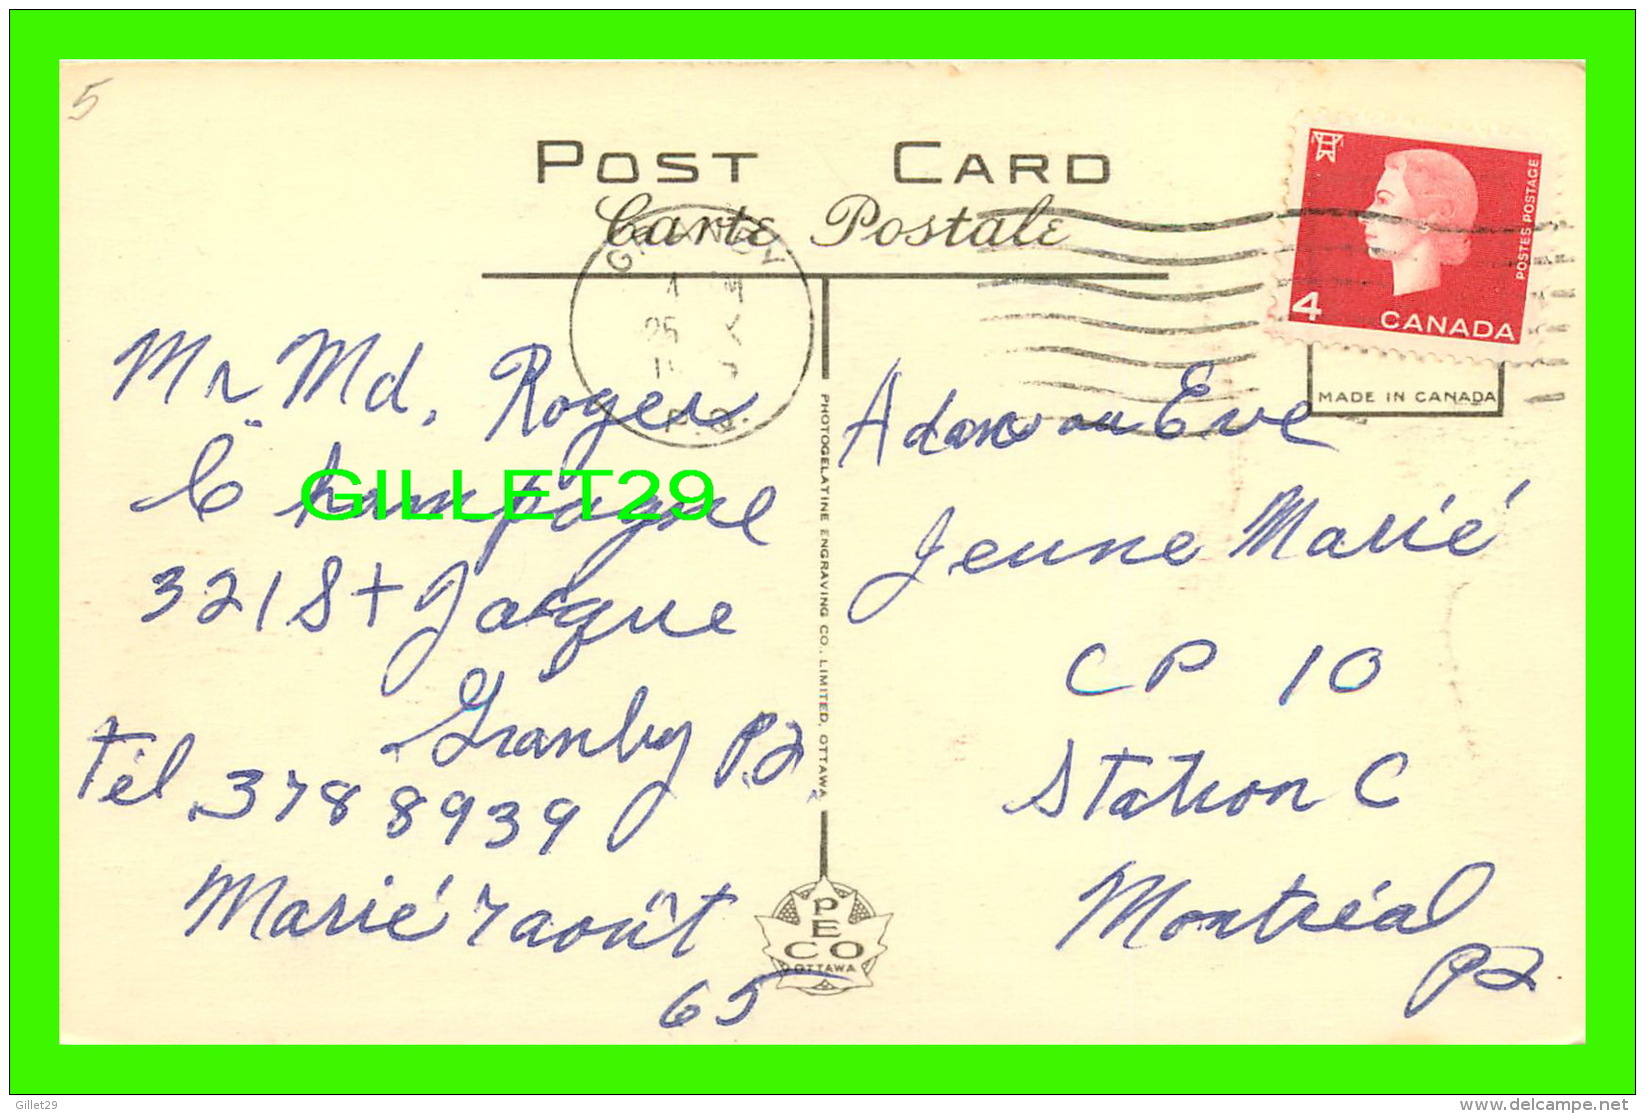 5
POST CARD
Carte Postale
POSTES POSTAGE
4 CANADA
MADE IN CANADA
P.Q.
Mr. Md. Roger
Champagne
321 St Jacque
Granby P.Q
Tél. 378 8939
Marié 7 août
65
GILLET29
PHOTOGELATINE ENGRAVING CO., LIMITED, OTTAWA
PECO
OTTAWA
Adam ou Eve
Jeune Marié
CP 10
Station C
Montréal
PQ
Gillet29
delcampe.net